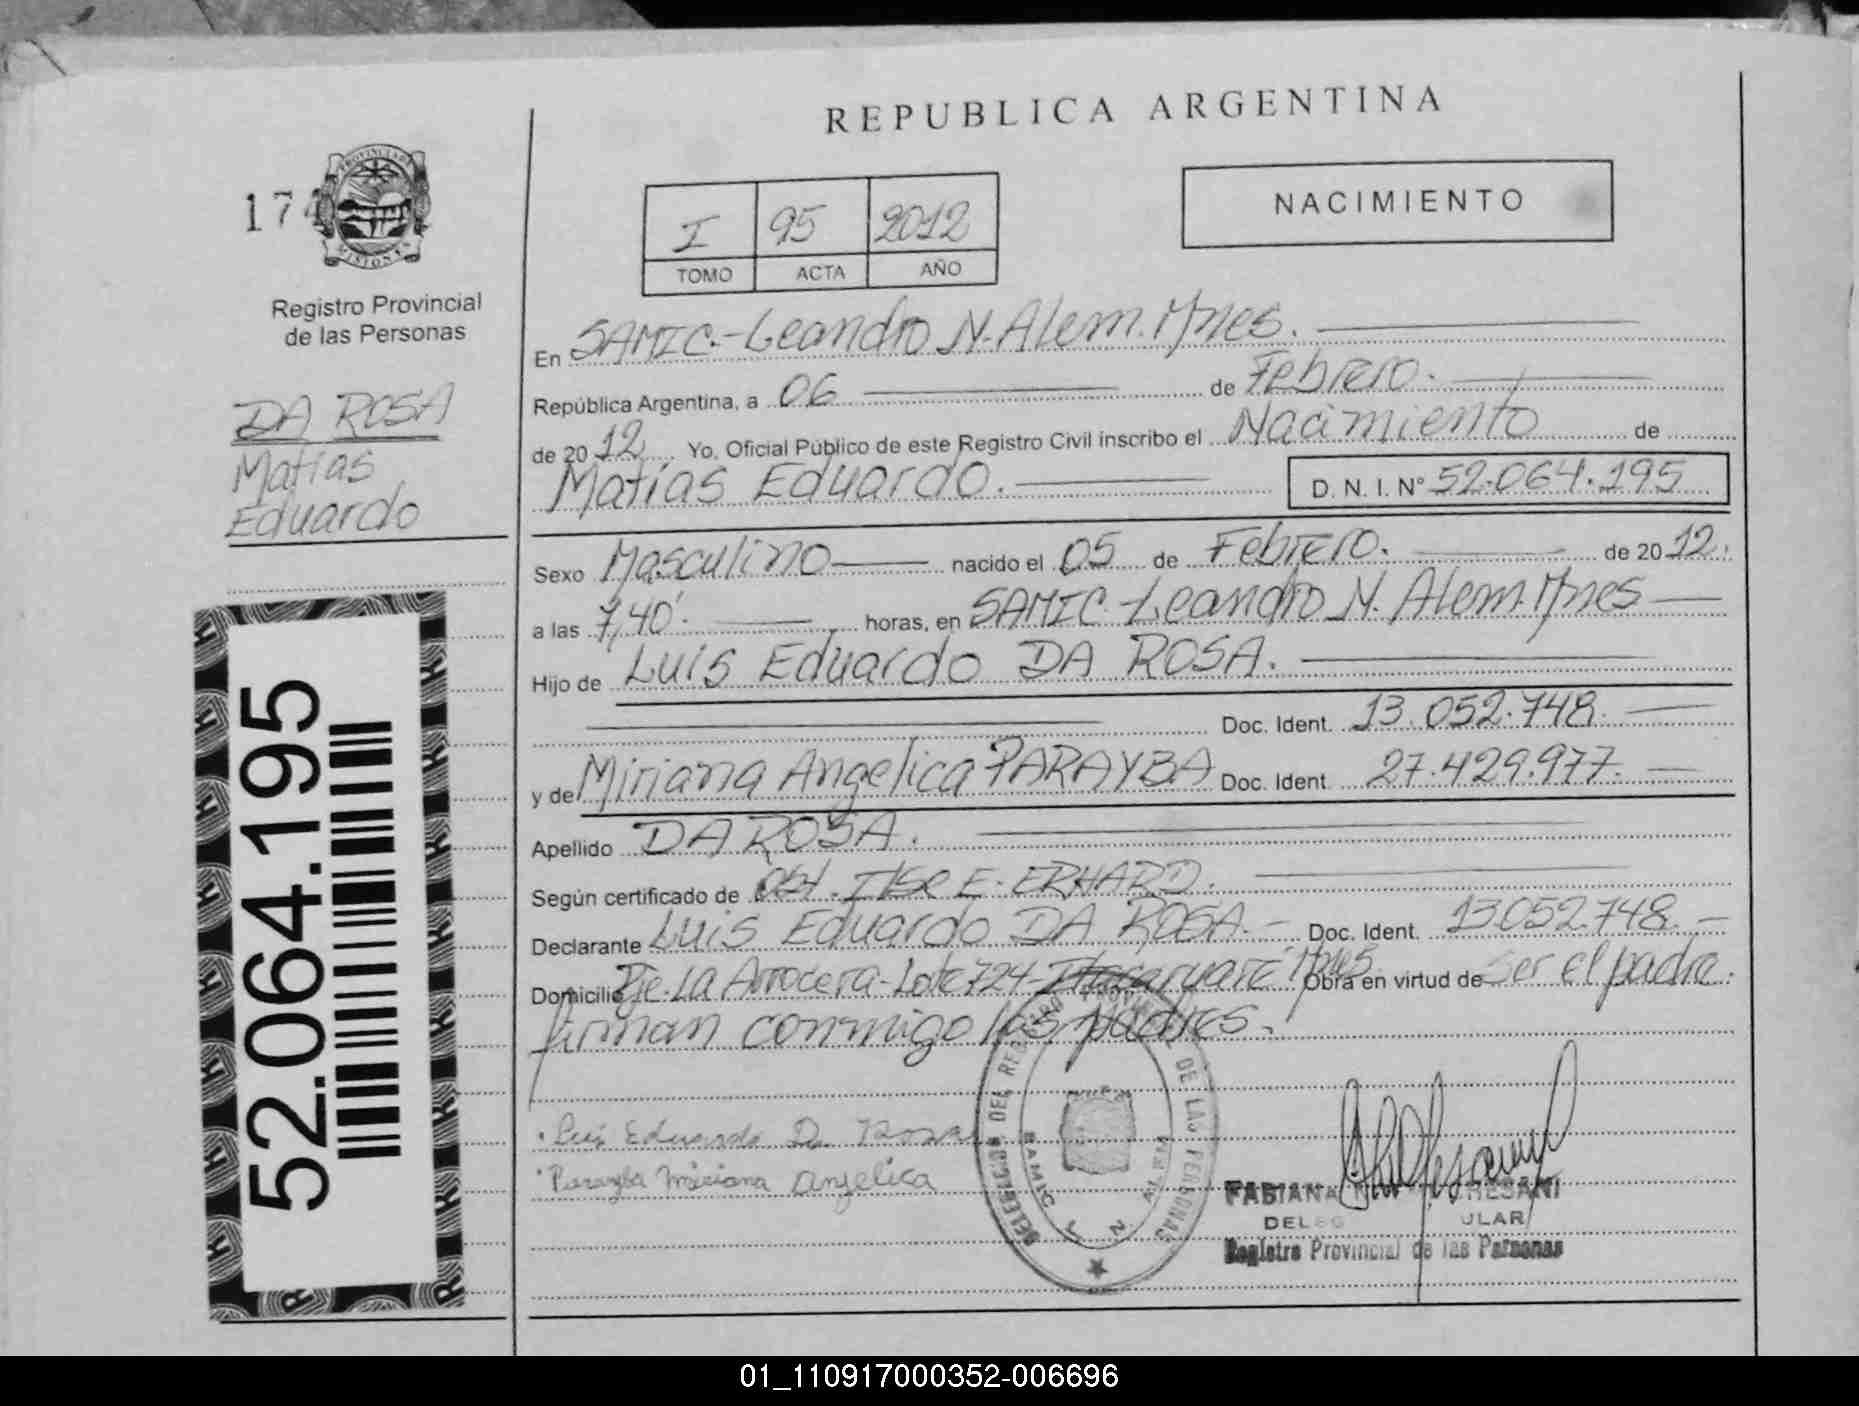 REPUBLICA ARGENTINA
NACIMIENTO
I 95 2012
TOMO ACTA AÑO
17
PROVINCIA DE MISIONES
Registro Provincial
de las Personas
DA ROSA
Matías
Eduardo
52.064.195
En SAMIC.-Leandro N. Alem. Mnes.
República Argentina, a 06 de Febrero.
de 2012 Yo, Oficial Público de este Registro Civil inscribo el Nacimiento de
Matías Eduardo. D. N. I. N° 52.064.195
Sexo Masculino nacido el 05 de Febrero. de 2012.
a las 7,40'. horas, en SAMIC-Leandro N. Alem. Mnes
Hijo de Luis Eduardo DA ROSA.
Doc. Ident. 13.052.748.
y de Miriana Angelica PARAYBA Doc. Ident. 27.429.977.
Apellido DA ROSA.
Según certificado de Obst. Ilse E. ERHARD.
Declarante Luis Eduardo DA ROSA.- Doc. Ident. 13.052.748.-
Domicilio Pje. La Arrocera-Lote 724- Mnes Obra en virtud de ser el padre.
firman conmigo los padres.
Luis Eduardo Da Rosa
Parayba Miriana Angelica
DELEGACION DEL REGISTRO PROVINCIAL DE LAS PERSONAS
SAMIC L. N.
FABIANA
Registro Provincial de las Personas
01_110917000352-006696